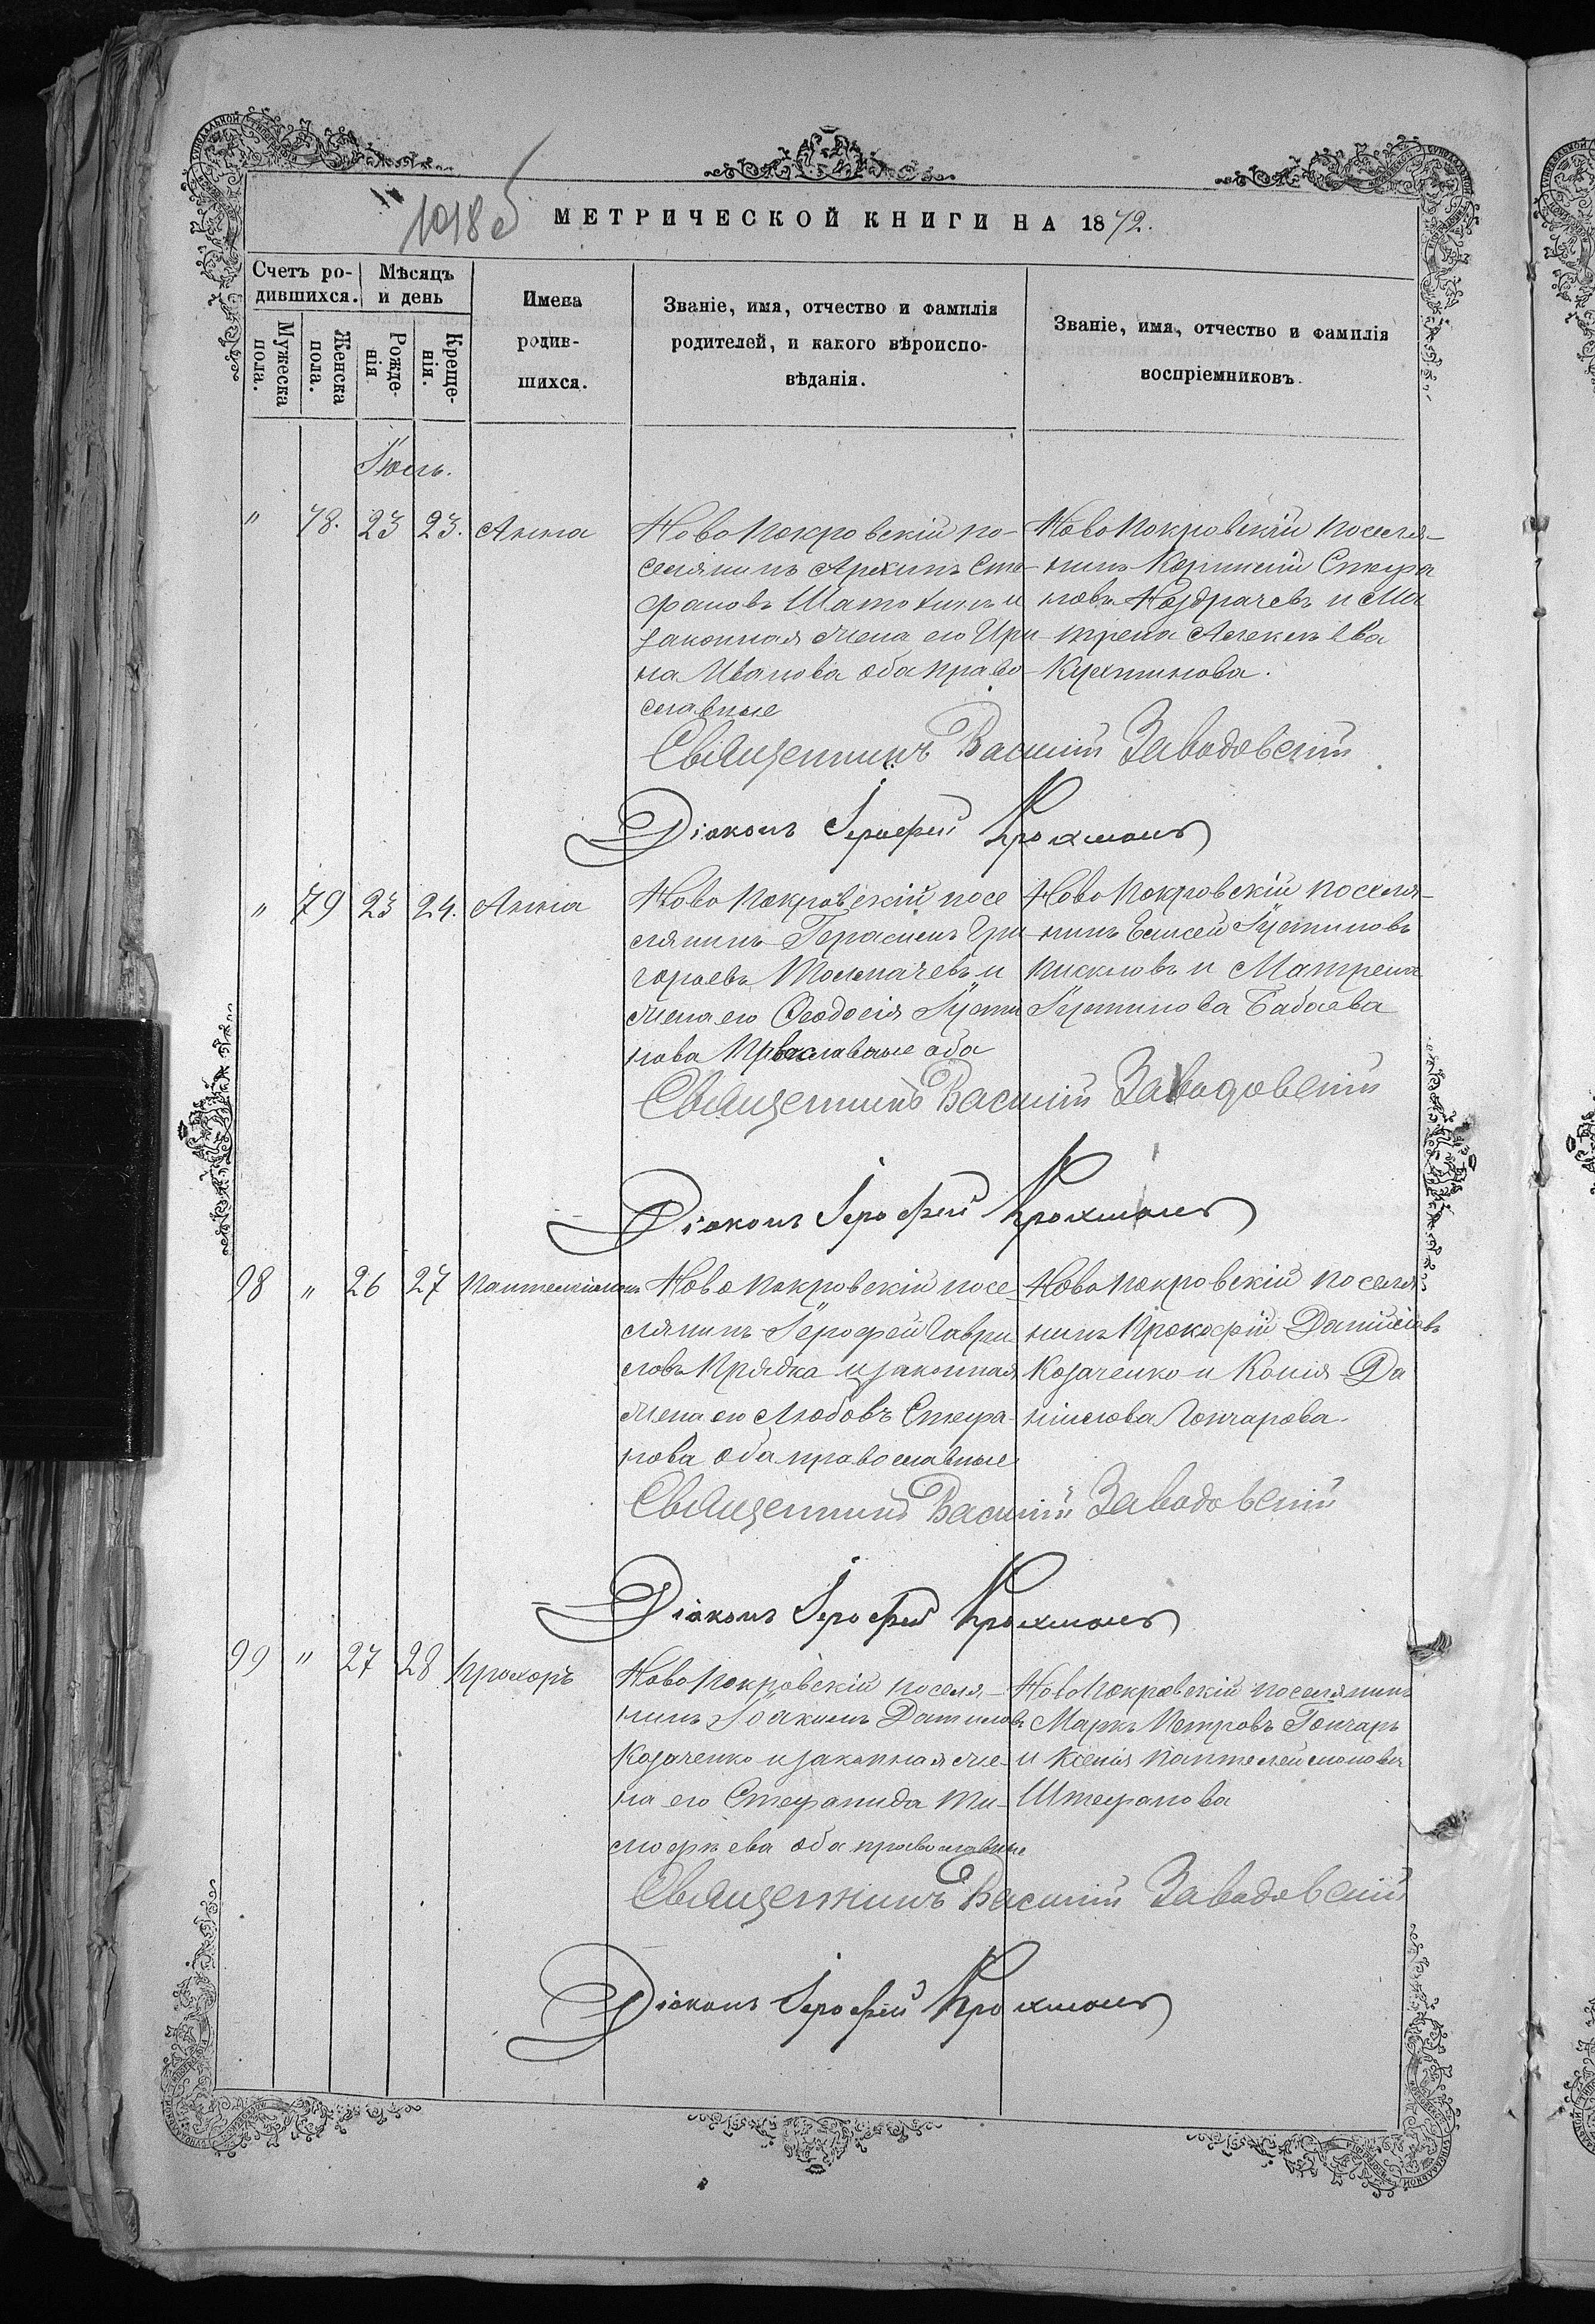 1018 об
МЕТРИЧЕСКОЙ КНИГИ НА 1872.
Счетъ ро-
дившихся.
Мѣсяцъ
и день
Мужеска
пола.
Женска
пола.
Рожде-
нія
Креще-
нія.
Имена
родив-
шихся.
Званіе, имя, отчество и фамилія
родителей, и какого вѣроиспо-
вѣданія.
Званіе, имя, отчество и фамилія
воспріемниковъ.
Іюль.
" 78. 23 23. Анна
Ново Покровскій по-
селянинъ Архипъ Сте-
фановъ и
законная жена его Ири-
на Иванова оба право-
славные
Ново Покровскій поселя-
нинъ Стефа
новъ Ноздрачевъ и Ма
трена Алексѣева
Священникъ Василій Заводовскій
Діаконъ Іерофей Крохмаль
" 79 23 24. Анна
Ново Покровскій посе
лянинъ Герасимъ Гри
горьевъ Толмачевъ и
жена его Ѳеодосія Іусти
нова Православные оба
Ново Покровскій поселя-
нинъ Елисей Іустиновъ
и Матрена
Іустинова Бабаева
Священникъ Василій Заводовскій
Діаконъ Іерофей Крохмаль
98 " 26 27 Пантелеімонъ
Ново Покровскій посе-
лянинъ Іерофей Гаври
ловъ Прядка и законная
жена его Любовь Стефа-
нова оба православные
Ново Покровскій поселя
нинъ Прокофій Даниіловъ
Козаченко и Ксенія Да
ніилова Гончарова
Священникъ Василій Заводовскій
Діаконъ Іерофей Крохмаль
99 " 27 28 Прохоръ
Ново Покровскій поселя-
нинъ Іоакимъ Даниловъ
Козаченко и законная же-
на его Стефанида Ти-
мофѣева оба православные
Ново Покровскій поселянинъ
Маркъ Петровъ Гончаръ
и Ксенія Пантелеймонова
Штефанова
Священникъ Василій Заводовскій
Діаконъ Іерофей Крохмаль